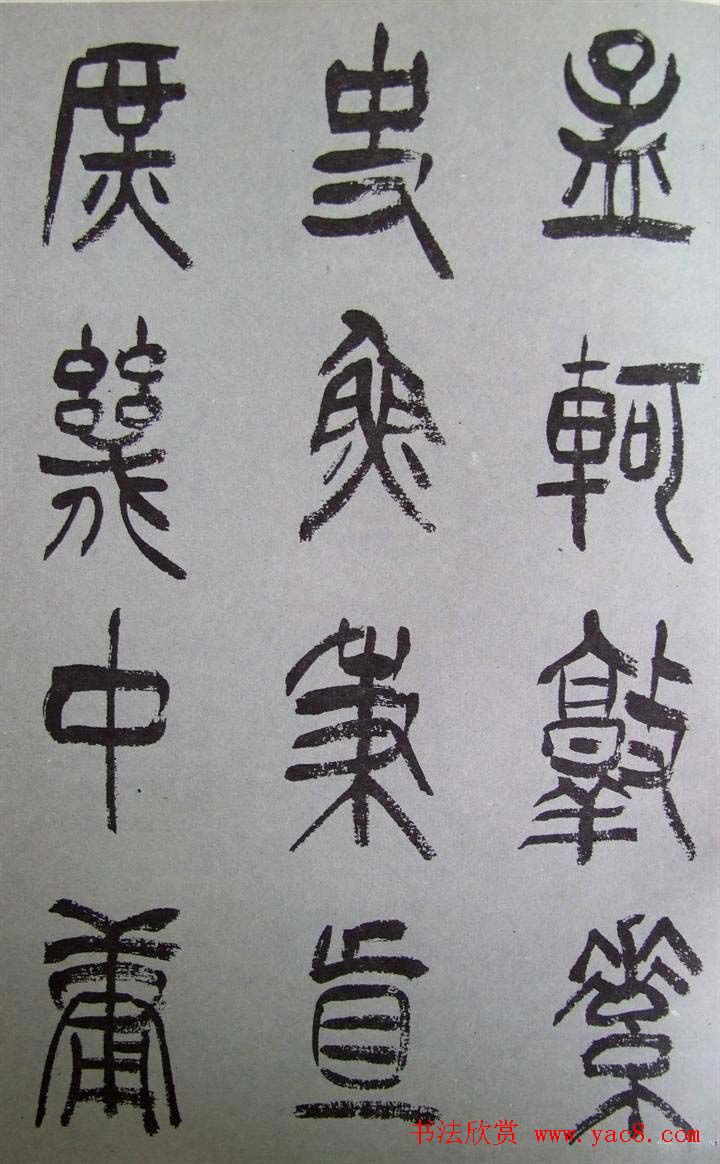 孟軻敦素
史魚秉直
庶幾中庸
书法欣赏 www.yac8.com